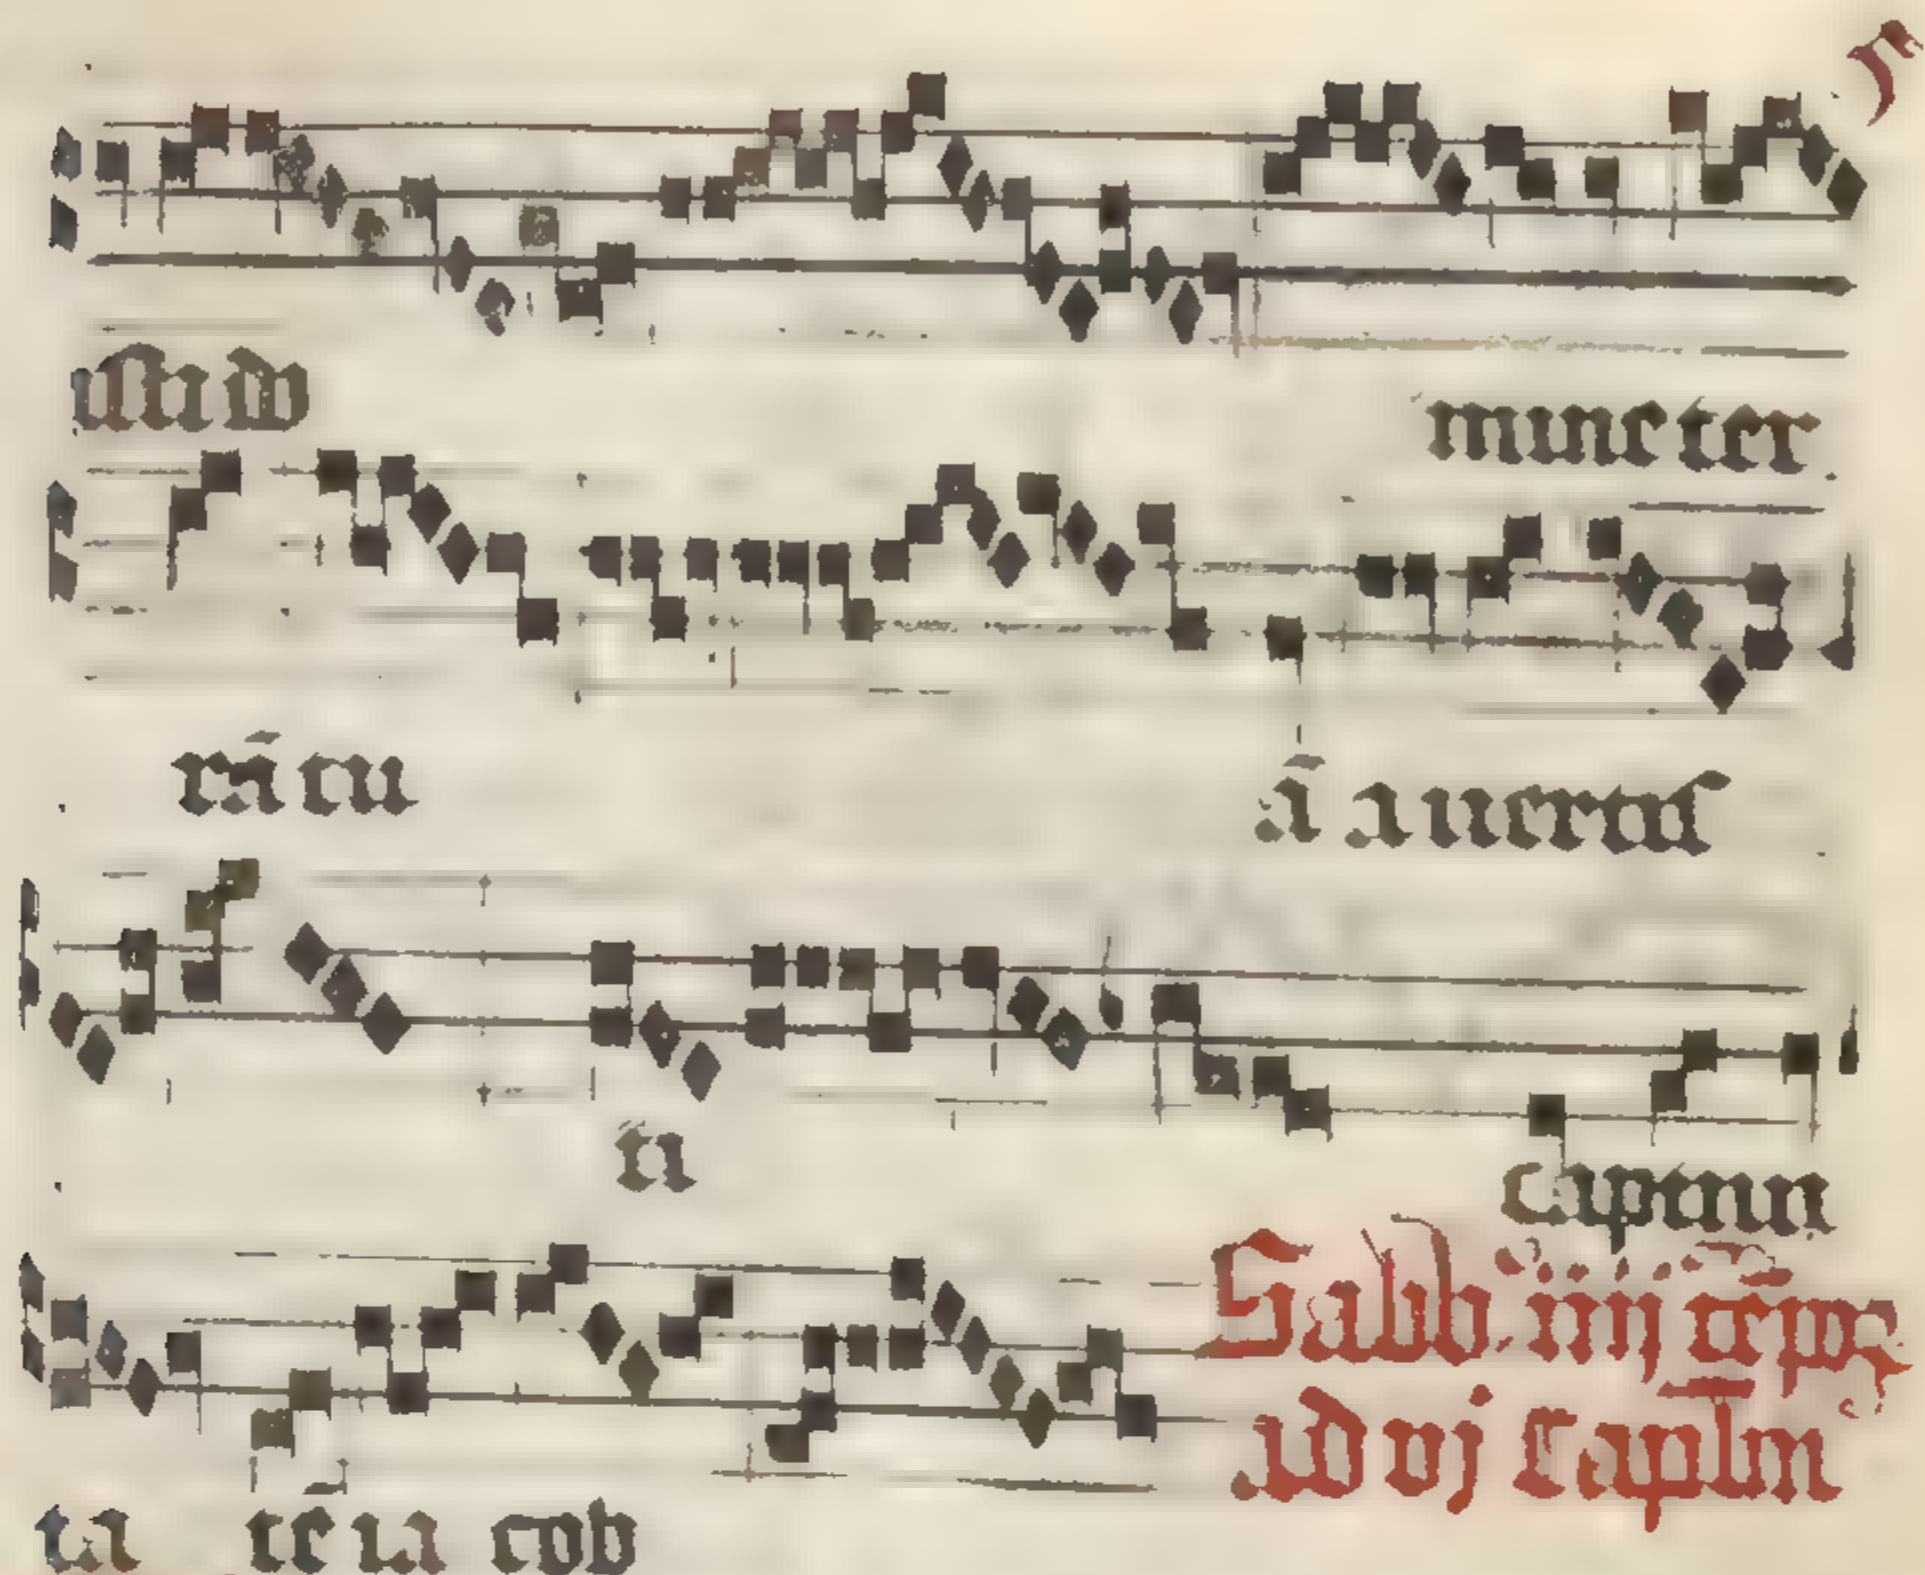 isti do mine ter
rā tu ā auertis
ti captiui
ta tē ia cob
Sabb iiij tēpoꝝ
ad vj Capłm